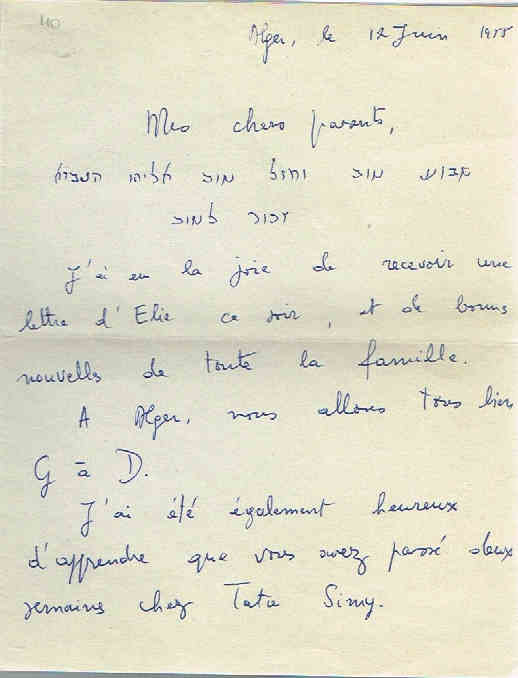 110
Alger, le 12 Juin 1955
Mes chers parents,
שבוע טוב ומזל טוב אליהו הנביא
זכור לטוב
J'ai eu la joie de recevoir une
lettre d'Elie ce soir, et de bonnes
nouvelles de toute la famille.
A Alger, nous allons tous bien
G à D.
J'ai été également heureux
d'apprendre que vous avez passé deux
semaines chez Tata Simy.